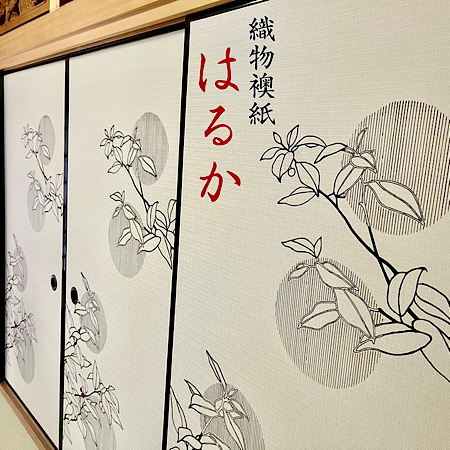 織物襖紙
はるか